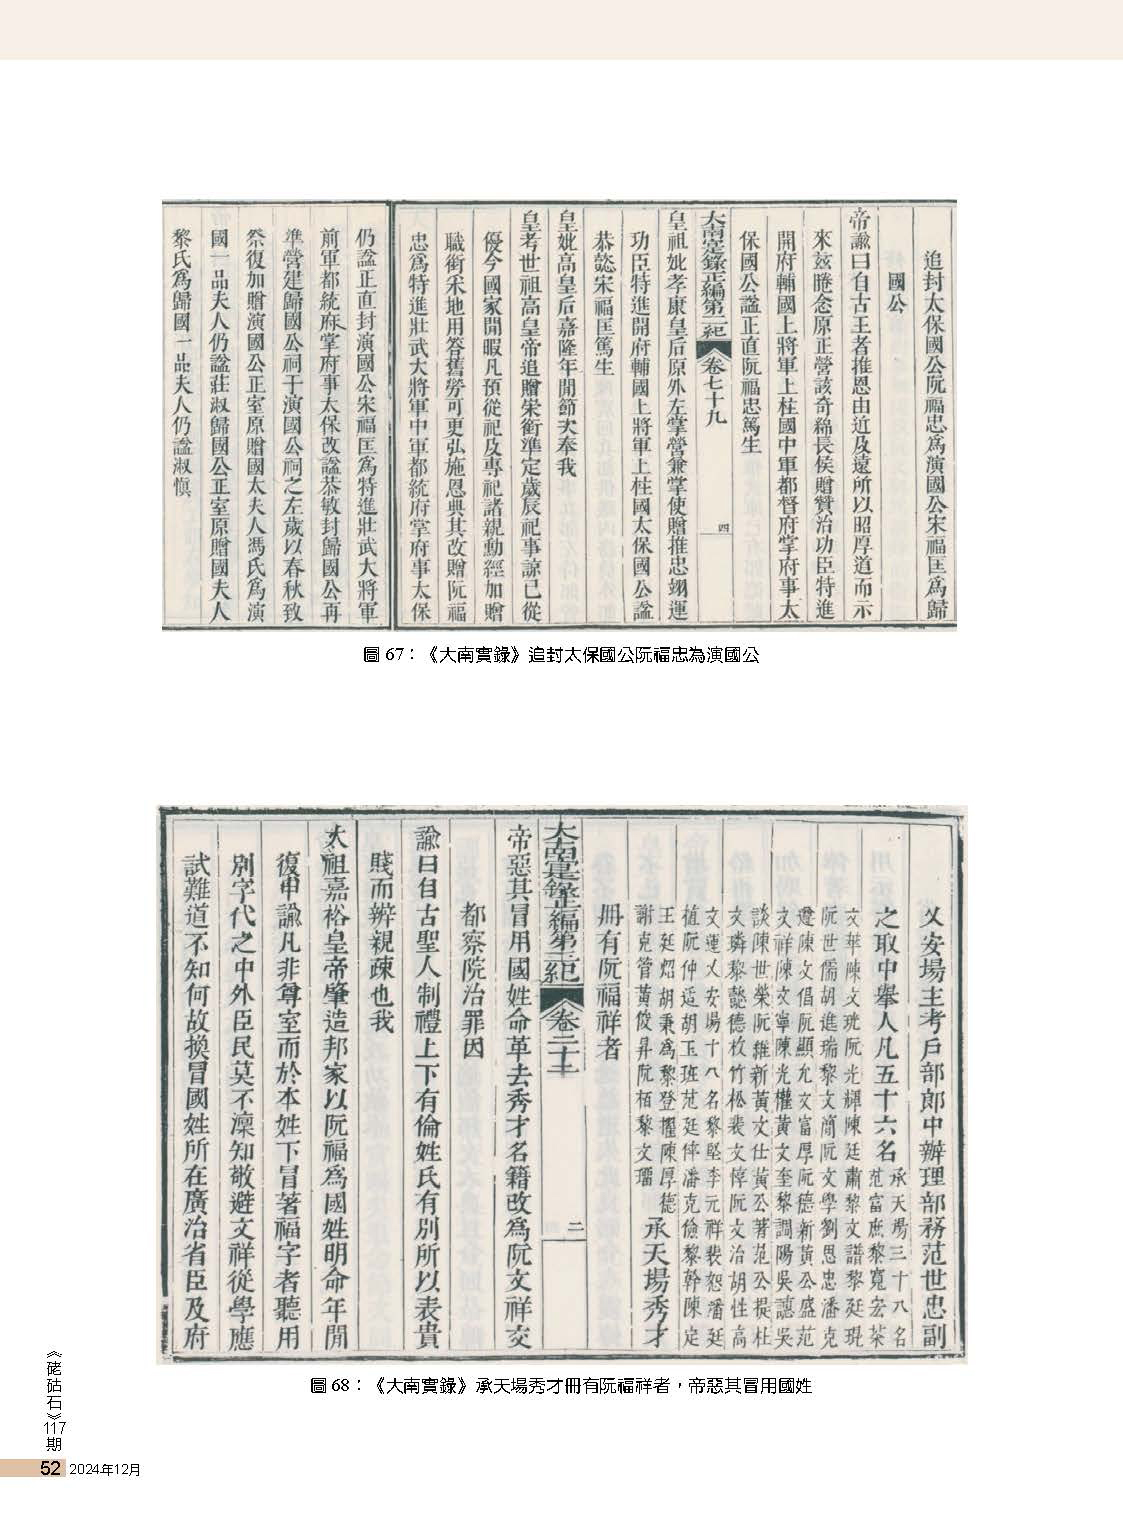 追封太保國公阮福忠爲演國公宋福匡爲歸
國公
帝諭曰自古王者推恩由近及遠所以昭厚道而示
來玆睠念原正營該奇綿長侯贈贊治功臣特進
開府輔國上將軍上柱國中軍都督府掌府事太
保國公諡正直阮福忠篤生
大南寔錄正編第二紀 卷七十九 四
皇祖妣孝康皇后原外左掌營兼掌使贈推忠翊運
功臣特進開府輔國上將軍上柱國太保國公諡
恭懿宋福匡篤生
皇妣高皇后嘉隆年間節次奉我
皇考世祖高皇帝追贈榮銜準定歲辰祀事諒已從
優今國家閒暇凡預從祀及專祀諸親勳經加贈
職銜采地用答舊勞可更弘施恩典其改贈阮福
忠爲特進壯武大將軍中軍都統府掌府事太保
仍諡正直封演國公宋福匡爲特進壯武大將軍
前軍都統府掌府事太保改諡恭敏封歸國公再
準營建歸國公祠于演國公祠之左歲以春秋致
祭復加贈演國公正室原贈國太夫人馮氏爲演
國一品夫人仍諡莊淑歸國公正室原贈國夫人
黎氏爲歸國一品夫人仍諡淑愼
圖 67：《大南實錄》追封太保國公阮福忠為演國公
乂安場主考戶部郎中辦理部務范世忠副
之取中舉人凡五十六名 承天場三十八名
范富庶黎寬宏茶
文華陳文珖阮光輝陳廷肅黎文譜黎廷現
阮世儒胡進瑞黎文簡阮文學劉思忠潘克
遵陳文倡阮顯允文富厚阮德新黃公盛范
文祥陳文寧陳光權黃文奎黎調陽吳讜吳
談陳世榮阮維新黃文仕黃公著范公提杜
文璘黎懿德枚竹松裴文惇阮文治胡性高
文運乂安場十八名黎堅李元祥裴恕潘廷
植阮仲适胡玉班范廷倖潘克儉黎幹陳定
王廷炤胡秉爲黎登擢陳厚德
謝克管黃俊昇阮栢黎文瓀 承天場秀才
冊有阮福祥者
大南寔錄正編第三紀 卷二十二 二
帝惡其冒用國姓命革去秀才名籍改爲阮文祥交
都察院治罪因
諭曰自古聖人制禮上下有倫姓氏有別所以表貴
賤而辨親疎也我
太祖嘉裕皇帝肇造邦家以阮福爲國姓明命年間
復申諭凡非尊室而於本姓下冒著福字者聽用
別字代之中外臣民莫不凜知敬避文祥從學應
試難道不知何故換冒國姓所在廣治省臣及府
圖 68：《大南實錄》承天場秀才冊有阮福祥者，帝惡其冒用國姓
《硓𥑮石》117期
52 2024年12月